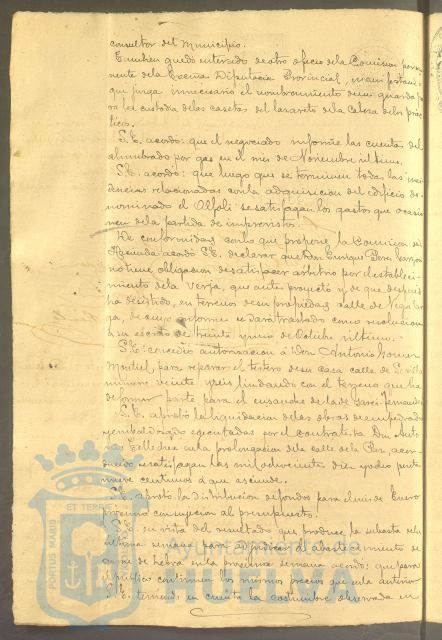 consultor del Municipio.
También quedó enterado de otro oficio de la Comision perma
nente de la Excma Diputacion Provincial, manifestando
que juzga innecesario el nombramiento de un guarda pa
ra la custodia de las casetas del lazareto de la Cabeza de los prác
ticos.
S.E. acordó: que el negociado informe las cuentas del
alumbrado por gas en el mes de Noviembre ultimo.
S.E. acordó: que luego que se terminen todas las inci
dencias relacionadas con la adquisicion del edificio de
nominado el se satisfagan los gastos que ocasio
nen de la partida de imprevistos.
De conformidad con lo que propone la Comision de
Hacienda acordó S.E. declarar que Don Enrique Perez
no tiene obligacion de satisfacer arbitrio por el estableci
miento de la verja, que antes proyectó y de que despues
ha desistido, en terreno de su propiedad calle de Vega Lar
ga, de cuyo informe se dará traslado como resolucion
á su escrito de treinta y uno de Octubre ultimo.
S.E. concedió autorizacion á Don Antonio
Montiel para reparar el testero de su casa calle de
número veinte y seis lindando con el terreno que ha
de formar parte para el ensanche de la de Garci-Fernandez
S.E. aprobó la liquidacion de las obras de empedrado
y embaldosado ejecutadas por el contratista Don Anto
nio en la prolongacion de la calle de la Paz, acor
dando se satisfagan las mil doscientas diez y ocho pesetas
nueve centimos á que asciende.
S.E. aprobó la distribucion de fondos para el mes de Enero
proximo con sujecion al presupuesto.
S.E. en vista del resultado que produce la subasta de la
última semana para adjudicar el abastecimiento de
carne de hebra en la proxima semana acordó: que para
el público continuen los mismos precios que en la anterior
S.E. teniendo en cuenta la costumbre observada en
PORTUS MARIS
ET TERRAE
Ayuntamiento de
HUELVA